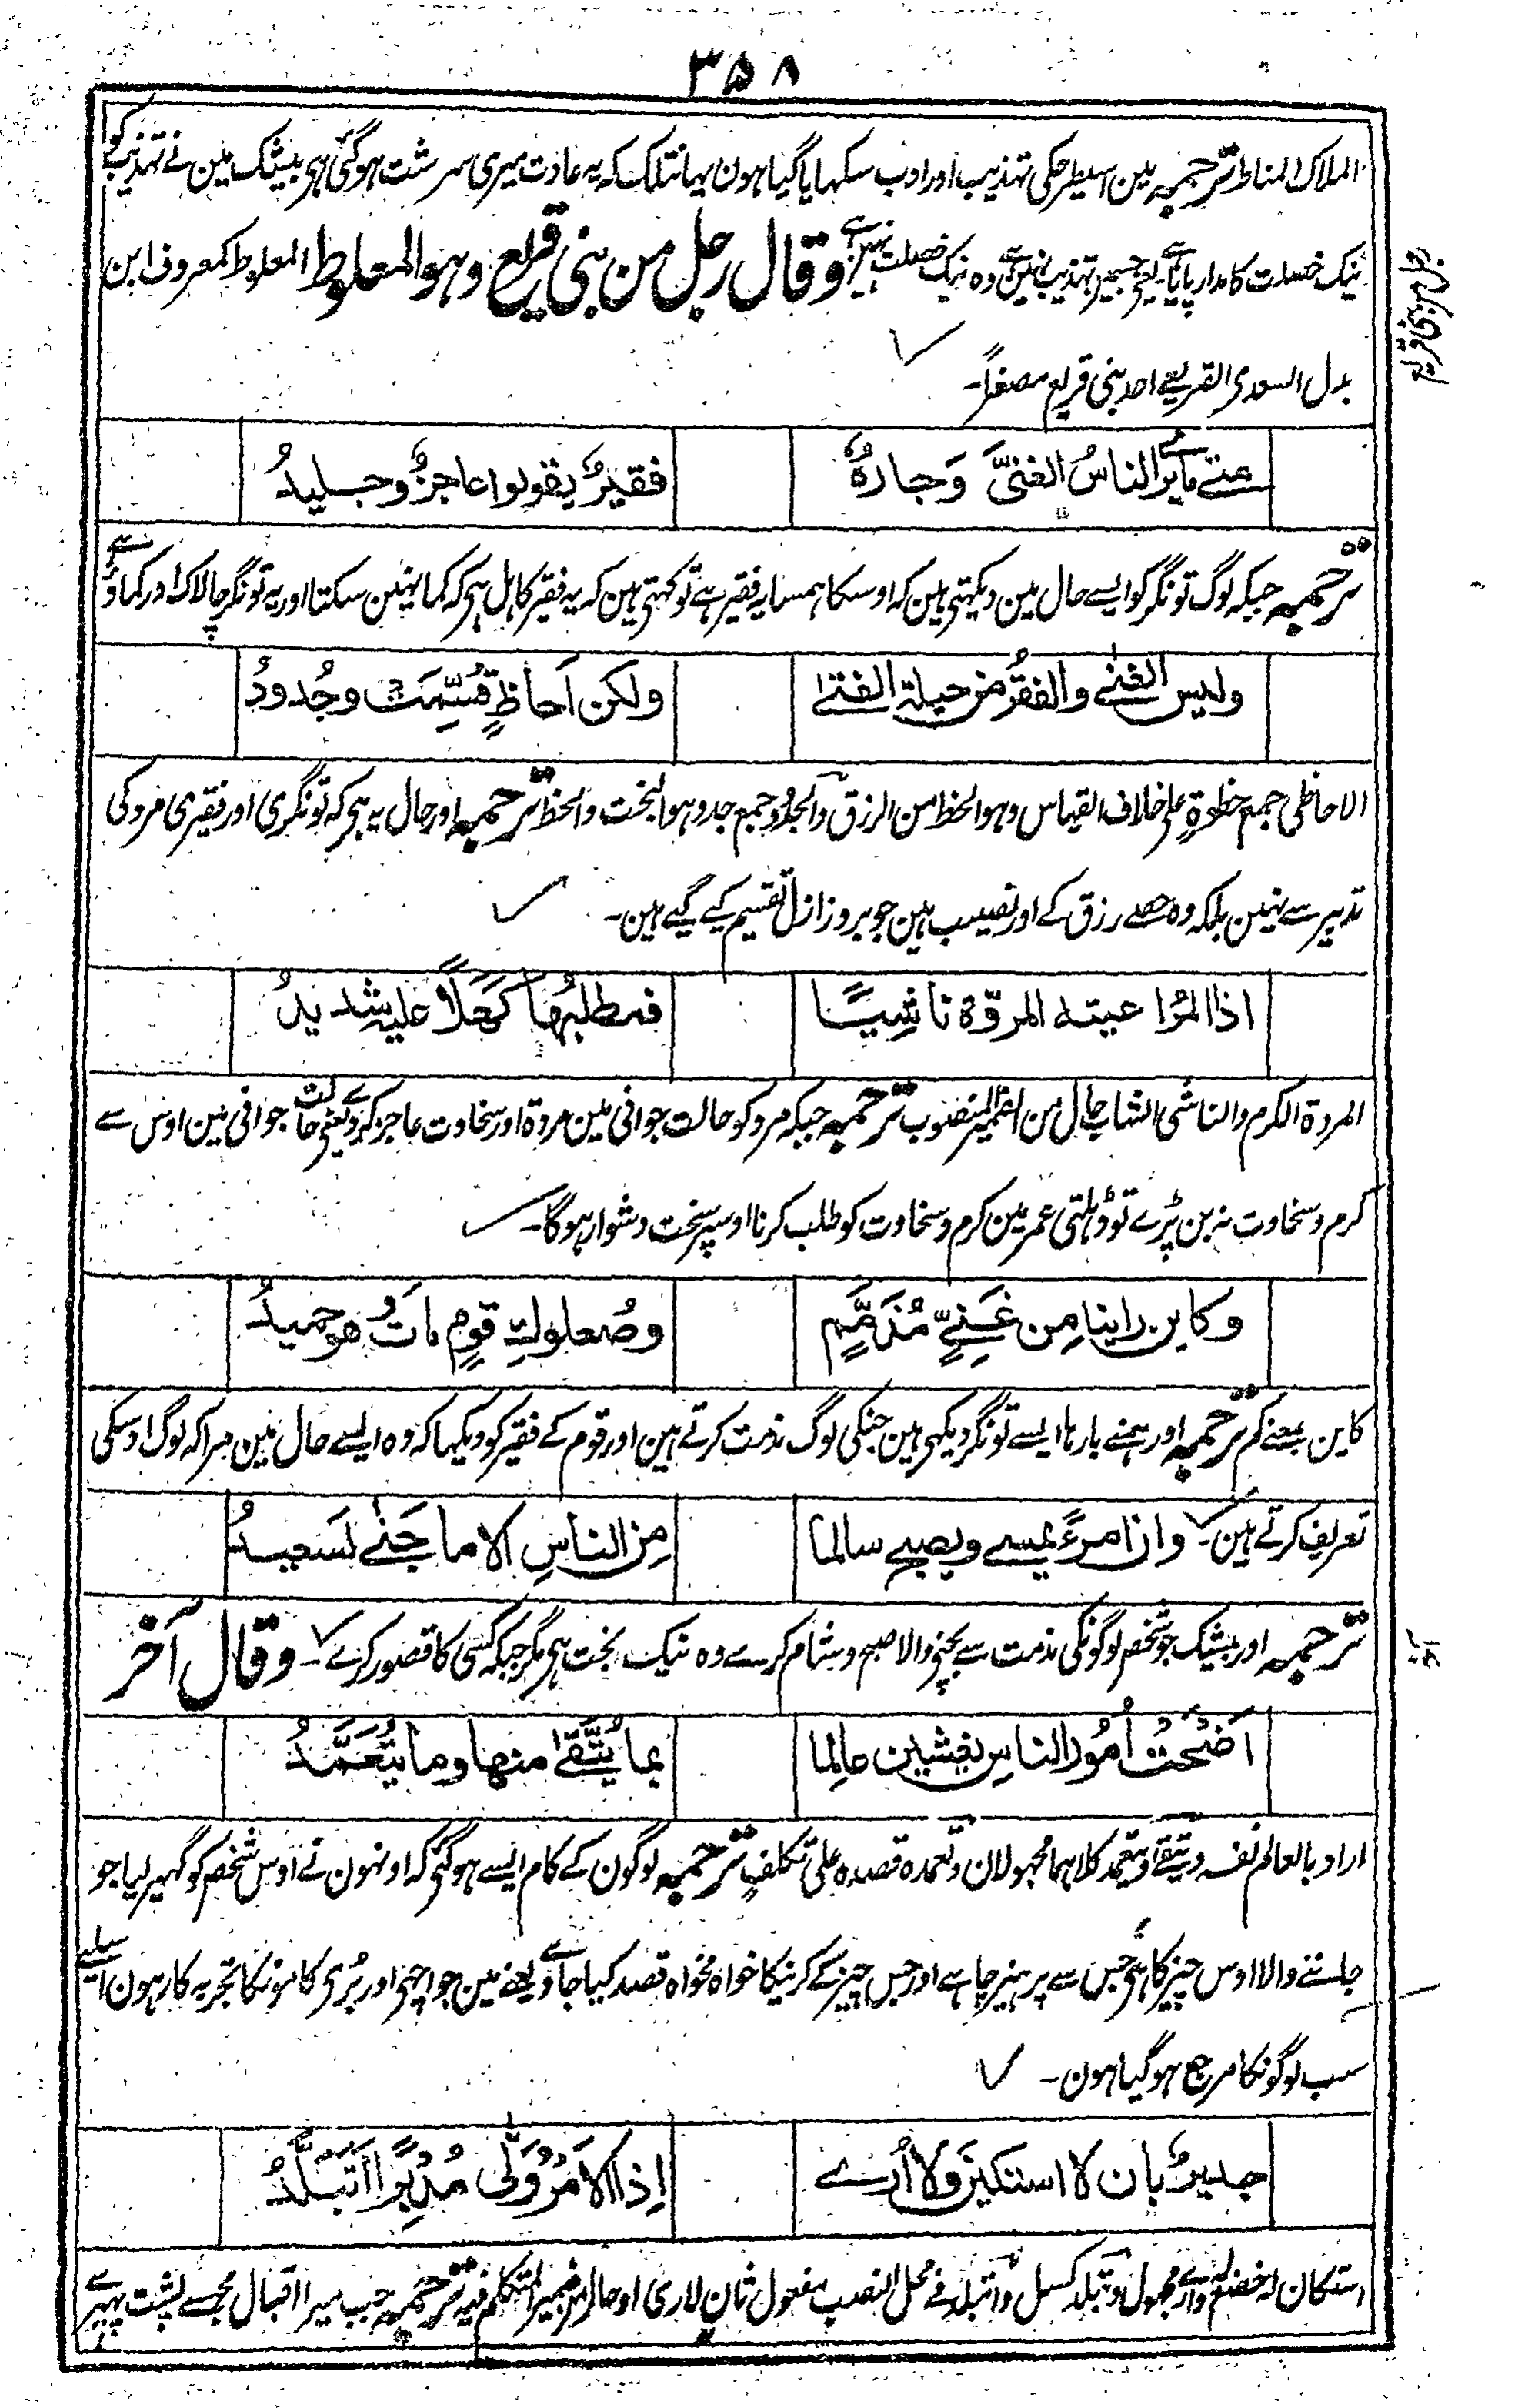 ۳۵۸
الملاک المناط ترجمہ مین اسیطرحکی تہذیب اور ادب سکہایا گیا ہون یہانتلک کہ یہ عادت میری سرشت ہوگئی ہی بیشک مین نے تہذیب کو
نیک خصلت کا مدار پایا ہے یعنی جسمین تہذیب نہین ہے وہ نیک خصلت نہین ہے وقال رجل من بنی قریع وہو المعلوط المعلوط کمعروف ابن
بدل السعدی القریعے احد بنی قریع مصغراً۔
رجل من بنی قریع
متے ما یرَ الناسُ الغنیَّ وَجارُہُ
فقیرٌ یقولوا عاجزٌ وجلیدُ
ترجمہ جبکہ لوگ تونگر کو ایسے حال مین دیکہتی ہین کہ اوسکا ہمسایہ فقیر ہے تو کہتی ہین کہ یہ فقیر کاہل ہی کہ کما نہین سکتا اور یہ تونگر چالاک اور کماؤ ہے
ولیس الغنے والفقرُ من حیلۃ الفتے
ولکن اَحاظٍ قُسِّمَت وجُدودُ
الاحاظی جمع حظوۃ علی خلاف القیاس وہو الحظ من الرزق والجدود جمع جد وہو البخت والحظ ترجمہ اور حال یہ ہی کہ تونگری اور فقیری مرد کی
تدبیر سے نہین بلکہ وہ حصے رزق کے اور نصیب ہین جو بروز ازل تقسیم کیے گیے ہین۔
اذا المرُٔ اعیتہ المروّۃ ناشِیًا
فمطلبُھا کَھلاً علیہ شدیدُ
المروۃ الکرم والناشی الشاب حال من الضمیر المنصوب ترجمہ جبکہ مرد کو حالت جوانی مین مروۃ اور سخاوت عاجز کردے یعنی حالت جوانی مین اوس سے
کرم وسخاوت نہ بن پڑے تو ڈہلتی عمر مین کرم وسخاوت کو طلب کرنا اوسپر سخت دشوار ہوگا۔
وکاین راینا من غَنِیٍّ مُذَمَّمٍ
وصُعلوکِ قومٍ ماتَ وھو حمیدُ
کاین بمعنے کم ترجمہ اور ہمنے بارہا ایسے تونگر دیکہی ہین جنکی لوگ مذمت کرتے ہین اور قوم کے فقیر کو دیکہا کہ وہ ایسے حال مین مرا کہ لوگ اوسکی
تعریف کرتے ہین۔ وان امرءً یمسے ویصبح سالما
مِن الناسِ الا ما جَنے لسَعیدُ
ترجمہ اور بیشک جو شخص لوگونکی مذمت سے بچنی والا صبح وشام کرے وہ نیک بخت ہی مگر جبکہ کسی کا قصور کرے۔ وقال آخر
اَضحَت اُمُور الناسِ یغشین عالِما
بما یُتَّقے منھا وما یُتَعَمَّدُ
اراد بالعالم نفسہ ویتقے ویتعمد کلاہما مجہولان وتعمدہ قصدہ علی تکلف ترجمہ لوگون کے کام ایسے ہوگئی کہ اونہون نے اوس شخص کو گہیر لیا جو
جاننے والا اوس چیز کا ہی جس سے پرہیز چاہے اور جس چیز کے کرنیکا خواہ نخواہ قصد کیا جاوے یعنے مین جو اچہی اور بُری کامونکا تجربہ کار ہون اسلیے
سب لوگونکا مرجع ہوگیا ہون۔
جدیرٌ بان لا استکینَ ولا اُرے
اِذا الامرُ وَلّی مُدبِرًا اَتَبَلَّدُ
استکان لہ خضع لہ وارے مجہول وتبلد کسل واتبلد فے محل النصب مفعول ثان لاری او حال من ضمیر المتکلم فیہ ترجمہ جب میرا اقبال مجہسے پشت پہیرے